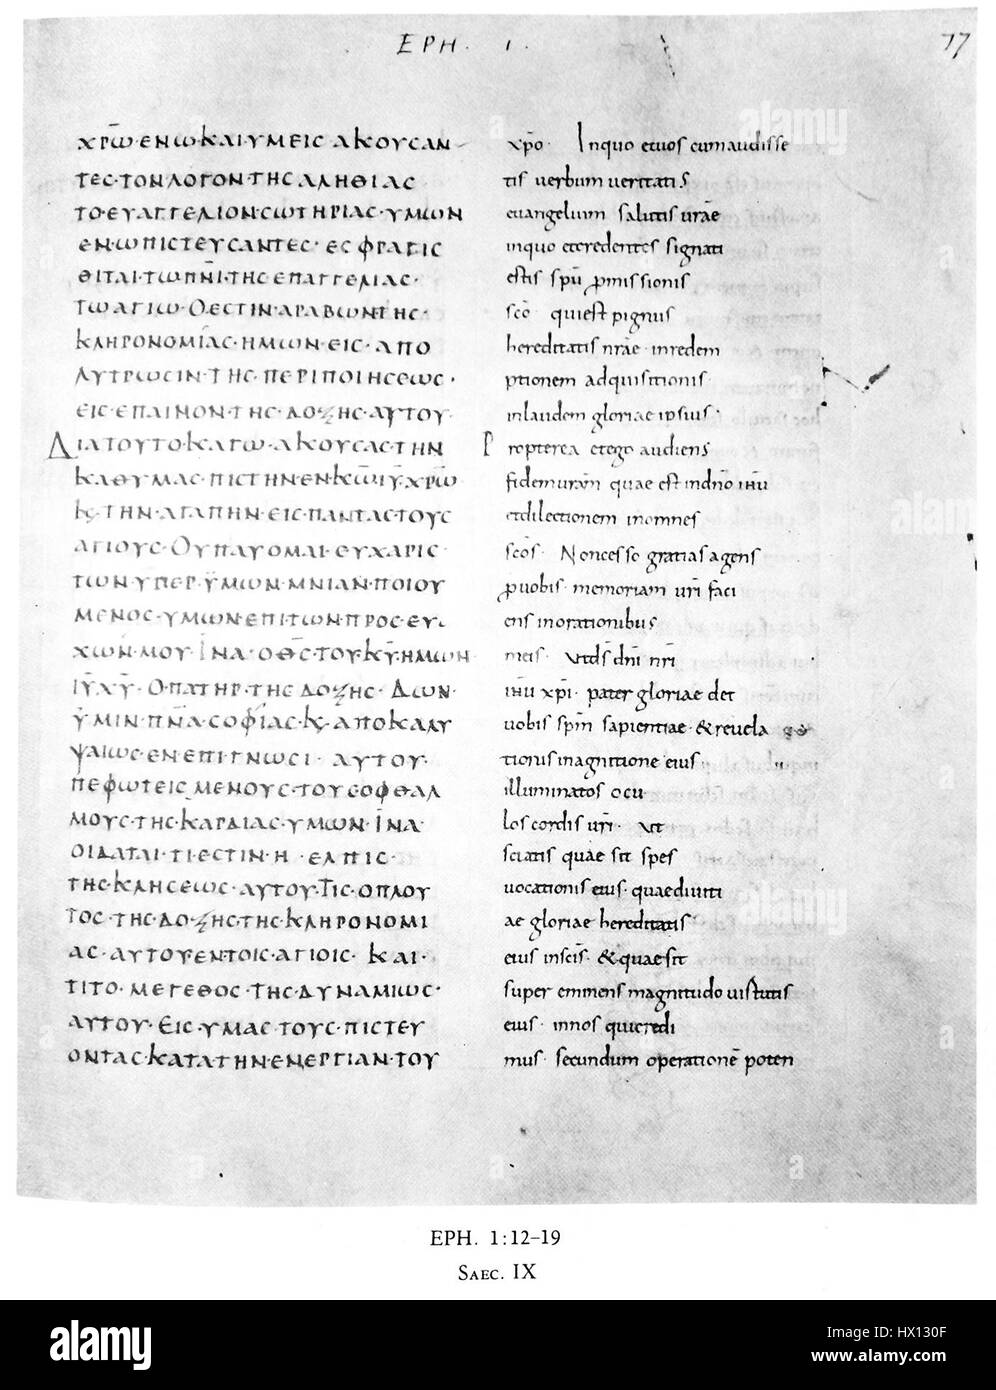 EPH. 1.
77
ΧΡ̅Ω·ΕΝΩ·ΚΑΙΥΜΕΙϹ ΑΚΟΥϹΑΝ
ΤΕϹ·ΤΟΝΛΟΓΟΝ·ΤΗϹ ΑΛΗΘΙΑϹ
ΤΟ·ΕΥΑΓΓΕΛΙΟΝ·ϹΩΤΗΡΙΑϹ·ΥΜΩΝ
ΕΝ·ΩΠΙϹΤΕΥϹΑΝΤΕϹ·ΕϹΦΡΑΓΙϹ
ΘΙΤΑΙ·ΤΩΠΝ̅Ι·ΤΗϹ ΕΠΑΓΓΕΛΙΑϹ·
ΤΩΑΓΙΩ·ΟΕϹΤΙΝ·ΑΡΑΒΩΝ·ΤΗϹ·
ΚΛΗΡΟΝΟΜΙΑϹ·ΗΜΩΝ·ΕΙϹ·ΑΠΟ
ΛΥΤΡΩϹΙΝ·ΤΗϹ·ΠΕΡΙΠΟΙΗϹΕΩϹ·
ΕΙϹ·ΕΠΑΙΝΟΝ·ΤΗϹ·ΔΟΞΗϹ·ΑΥΤΟΥ·
ΔΙΑΤΟΥΤΟ·ΚΑΓΩ·ΑΚΟΥϹΑϹ·ΤΗΝ
ΚΑΘΥΜΑϹ·ΠΙϹΤΗΝ·ΕΝ·Κ̅Ω̅ΙΥ̅ΧΡ̅Ω
Κϛ·ΤΗΝ·ΑΓΑΠΗΝ·ΕΙϹ·ΠΑΝΤΑϹ·ΤΟΥϹ
ΑΓΙΟΥϹ·ΟΥΠΑΥΟΜΑΙ·ΕΥΧΑΡΙϹ
ΤΩΝ·ΥΠΕΡ·ΫΜΩΝ·ΜΝΙΑΝ·ΠΟΙΟΥ
ΜΕΝΟϹ·ΥΜΩΝ·ΕΠΙΤΩΝ·ΠΡΟϹ·ΕΥ
ΧΩΝ·ΜΟΥ·ΙΝΑ·ΟΘ̅Ϲ·ΤΟΥ·Κ̅Υ·ΗΜΩΝ·
ΙΥ̅·ΧΥ̅·ΟΠΑΤΗΡ·ΤΗϹ·ΔΟΞΗϹ·ΔΩΝ·
ΥΜΙΝ·ΠΝ̅Α·ϹΟΦΙΑϹ·Κϛ·ΑΠΟΚΑΛΥ
ΨΑΙΩϹ·ΕΝΕΠΙΓΝΩϹΙ·ΑΥΤΟΥ·
ΠΕΦΩΤΕΙϹΜΕΝΟΥϹ·ΤΟΥϹΟΦΘΑΛ
ΜΟΥϹ·ΤΗϹ·ΚΑΡΔΙΑϹ·ΥΜΩΝ·ΙΝΑ·
ΟΙΔΑΤΑΙ·ΤΙ·ΕϹΤΙΝ·Η·ΕΛΠΙϹ·
ΤΗϹ·ΚΛΗϹΕΩϹ·ΑΥΤΟΥ·ΤΙϹ·ΟΠΛΟΥ
ΤΟϹ·ΤΗϹ·ΔΟΞΗϹ·ΤΗϹ·ΚΛΗΡΟΝΟΜΙ
ΑϹ·ΑΥΤΟΥ·ΕΝΤΟΙϹ·ΑΓΙΟΙϹ·ΚΑΙ·
ΤΙΤΟ·ΜΕΓΕΘΟϹ·ΤΗϹ·ΔΥΝΑΜΙΩϹ·
ΑΥΤΟΥ·ΕΙϹ·ΥΜΑϹ·ΤΟΥϹ·ΠΙϹΤΕΥ
ΟΝΤΑϹ·ΚΑΤΑΤΗΝ·ΕΝΕΡΓΙΑΝ·ΤΟΥ
xp̅o· Inquo etuos cumaudisse
tis verbum veritatis
euangelium salutis ur̅ae
inquo etcredentes signati
estis spu̅ promissionis
sc̅o quiest pignus
hereditatis nr̅ae· inredem
ptionem adquisitionis·
inlaudem gloriae ipsius·
Propterea etego audiens
fidemura̅m quae est indn̅o ihu̅
etdilectionem inomnes
sc̅os· Noncesso gratias agens
pro uobis· memoriam uri̅ faci
ens inorationibus
meis· utds̅ dn̅i nr̅i
ihu̅ xpi̅· pater gloriae det
uobis spm̅ sapientiae·&reuela
tionis inagnitione eius·
illuminatos ocu
los cordis uri̅· ut
sciatis quae sit spes
uocationis eius·quaediuiti
ae gloriae hereditatis
eius insc̅is· &quaesit
super eminens magnitudo uirtutis
eius· innos quicredi
mus· secundum operatione̅ poten
EPH. 1:12–19
SAEC. IX
alamy
Image ID: HX130F
www.alamy.com